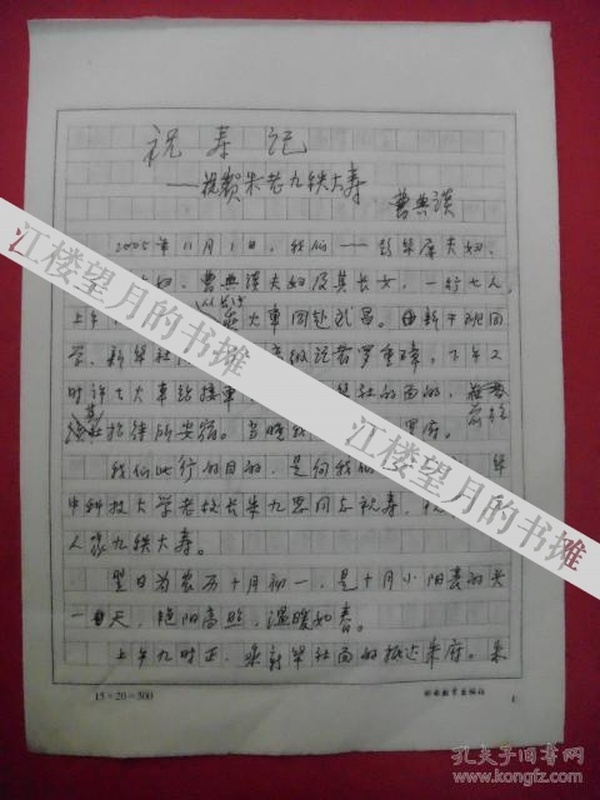 祝寿记
——祝贺朱老九秩大寿
曹典谟
2005年11月1日，我们——彭华属夫妇、
夫妇、曹典谟夫妇及其长女，一行七人，
上午 从长沙 乘火车同赴武昌。由新干班同
学、新华社 高级记者罗重玮，下午2
时许 火车站接车， 华社的面的，
招待所安宿。当晚 罗府。
我们此行的目的，是向我们 华
中科技大学老校长朱九思同志祝寿，
人家九秩大寿。
翌日为农历十月初一，是十月小阳春的头
一天，艳阳高照，温暖如春。
上午九时正，乘新华社面的抵达朱府。朱
15×20=300
1
江楼望月的书摊
江楼望月的书摊
孔夫子旧书网
www.kongfz.com